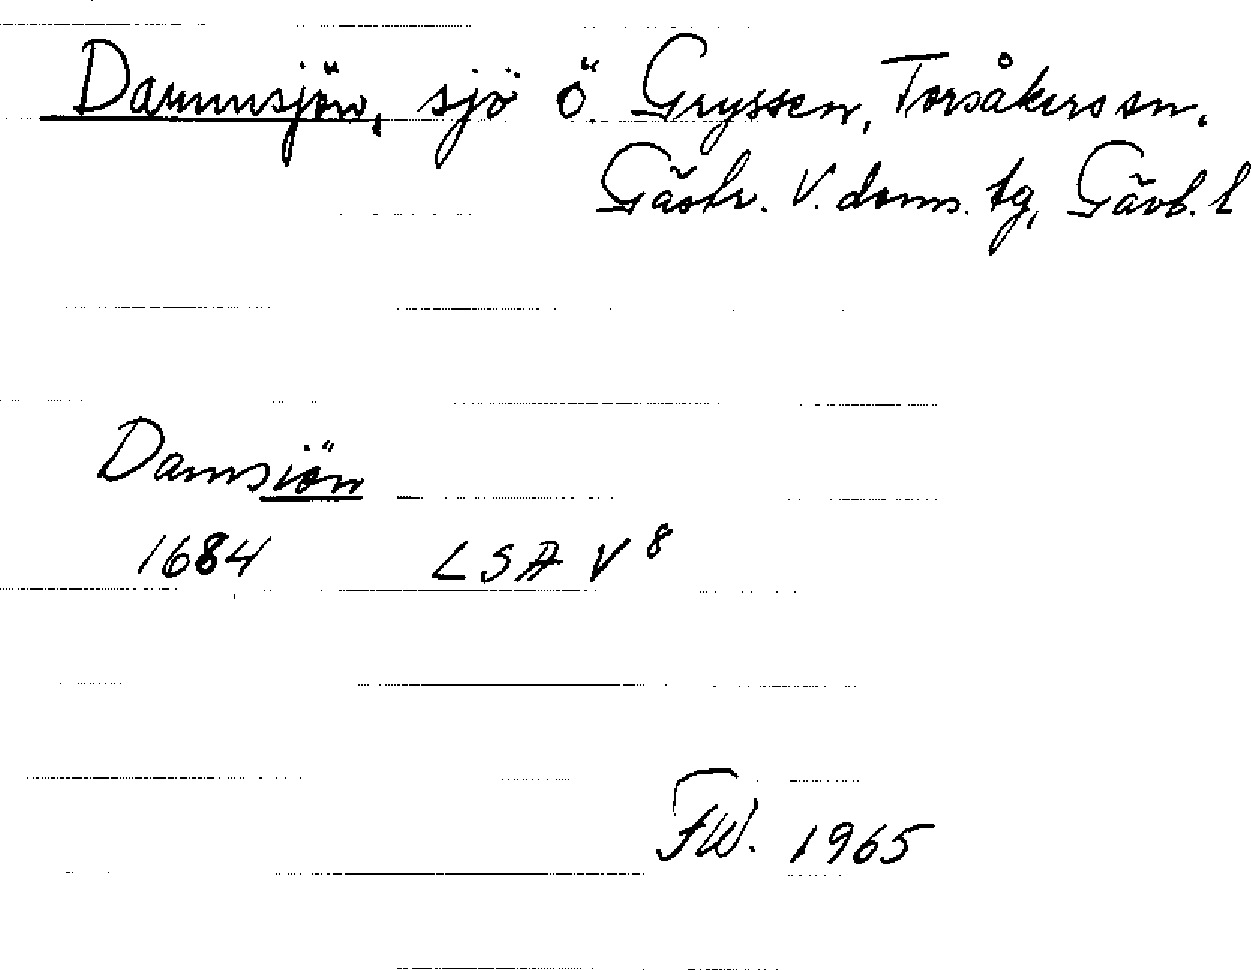 Dammsjön, sjö Ö. Gryssen, Torsåkers sn.
Gästr. V. doms. tg, Gävb. l
Damsiön
1684 LSA V 8
FW. 1965